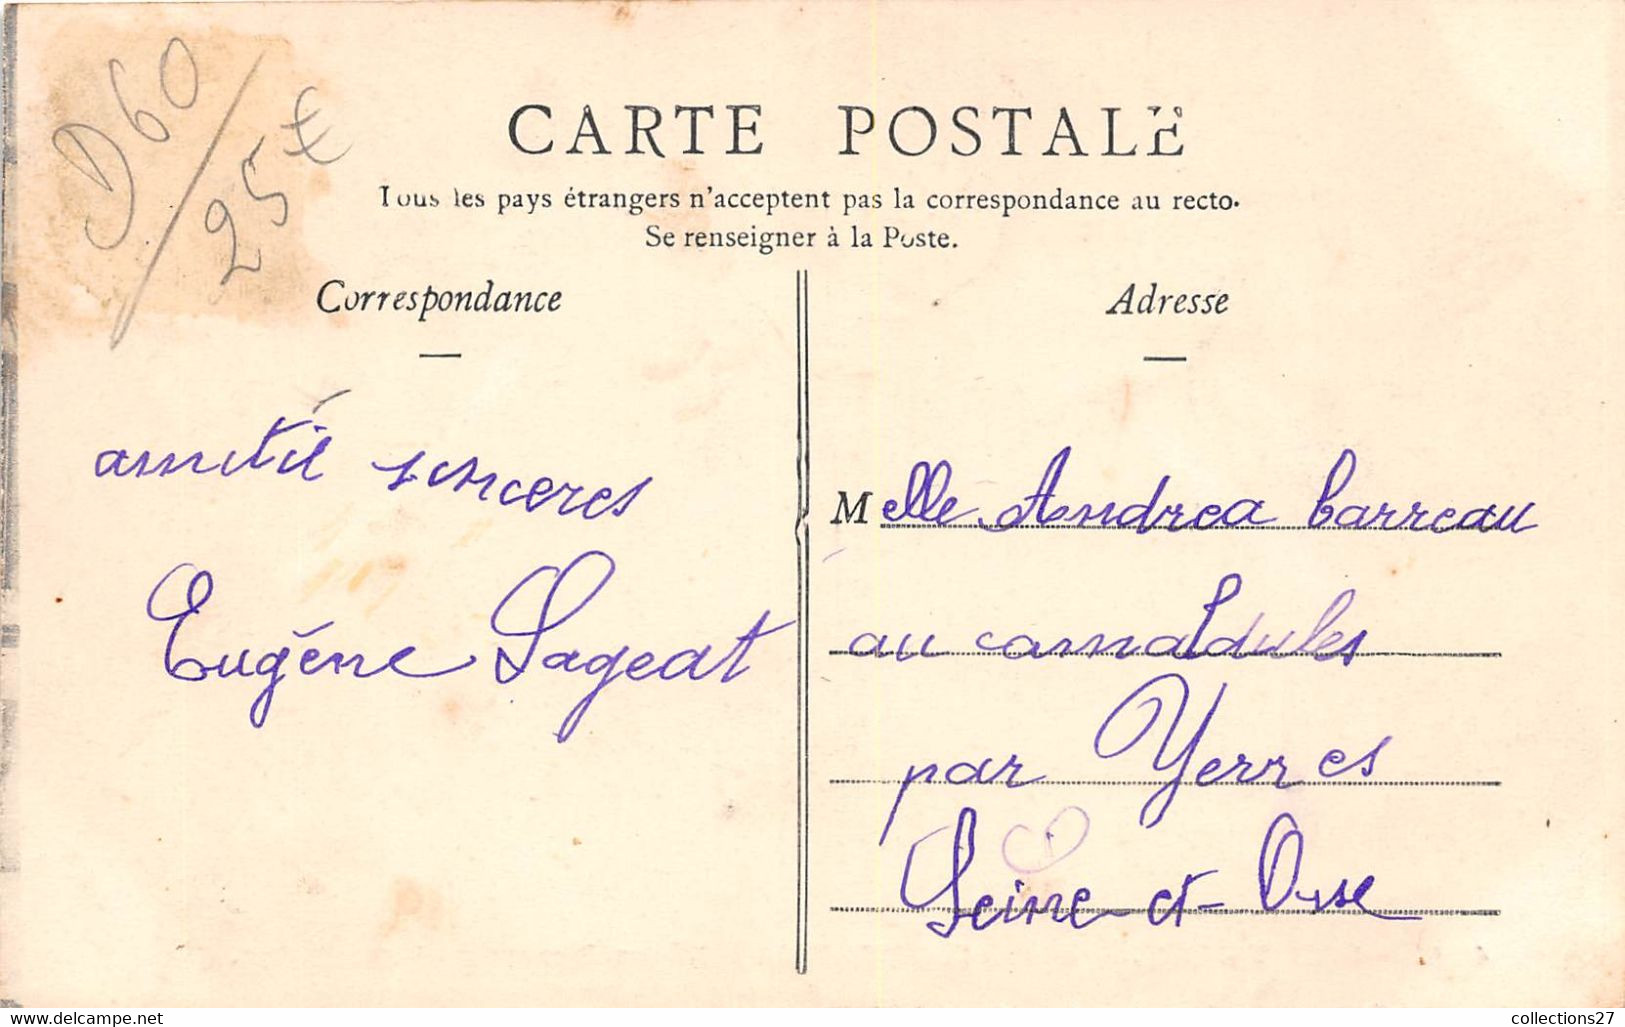 D60/25€
CARTE POSTALE
Tous les pays étrangers n'acceptent pas la correspondance au recto.
Se renseigner à la Poste.
Correspondance
amitié sinceres
Eugène Sageat
Adresse
Melle Andrea barreau
au camaldules
par Yerres
Seine-et-Oise
www.delcampe.net
collections27